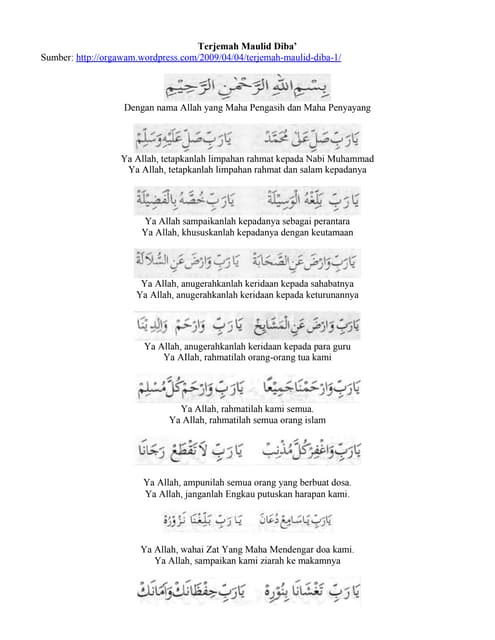 Terjemah Maulid Diba’
Sumber: http://orgawam.wordpress.com/2009/04/04/terjemah-maulid-diba-1/
بِسْمِ اللهِ الرَّحْمٰنِ الرَّحِيْمِ
Dengan nama Allah yang Maha Pengasih dan Maha Penyayang
يَارَبِّ صَلِّ عَلٰى مُحَمَّدْ يَارَبِّ صَلِّ عَلَيْهِ وَسَلِّمْ
Ya Allah, tetapkanlah limpahan rahmat kepada Nabi Muhammad
Ya Allah, tetapkanlah limpahan rahmat dan salam kepadanya
يَارَبِّ بَلِّغْهُ الْوَسِيْلَةْ يَارَبِّ خُصَّهُ بِالْفَضِيْلَةْ
Ya Allah sampaikanlah kepadanya sebagai perantara
Ya Allah, khususkanlah kepadanya dengan keutamaan
يَارَبِّ وَارْضَ عَنِ الصَّحَابَةْ يَارَبِّ وَارْضَ عَنِ السُّلَالَةْ
Ya Allah, anugerahkanlah keridaan kepada sahabatnya
Ya Allah, anugerahkanlah keridaan kepada keturunannya
يَارَبِّ وَارْضَ عَنِ الْمَشَايِخْ يَارَبِّ وَارْحَمْ وَالِدِيْنَا
Ya Allah, anugerahkanlah keridaan kepada para guru
Ya Allah, rahmatilah orang-orang tua kami
يَارَبِّ وَارْحَمْنَا جَمِيْعًا يَارَبِّ وَارْحَمْ كُلَّ مُسْلِمْ
Ya Allah, rahmatilah kami semua.
Ya Allah, rahmatilah semua orang islam
يَارَبِّ وَاغْفِرْ كُلَّ مُذْنِبْ يَارَبِّ لَاتَقْطَعْ رَجَانَا
Ya Allah, ampunilah semua orang yang berbuat dosa.
Ya Allah, janganlah Engkau putuskan harapan kami.
يَارَبِّ يَاسَامِعْ دُعَانَا يَارَبِّ بَلِّغْنَا نَزُوْرُهْ
Ya Allah, wahai Zat Yang Maha Mendengar doa kami.
Ya Allah, sampaikan kami ziarah ke makamnya
يَارَبِّ تَغْشَانَا بِنُوْرِهْ يَارَبِّ حِفْظَانَكْ وَاَمَانَكْ